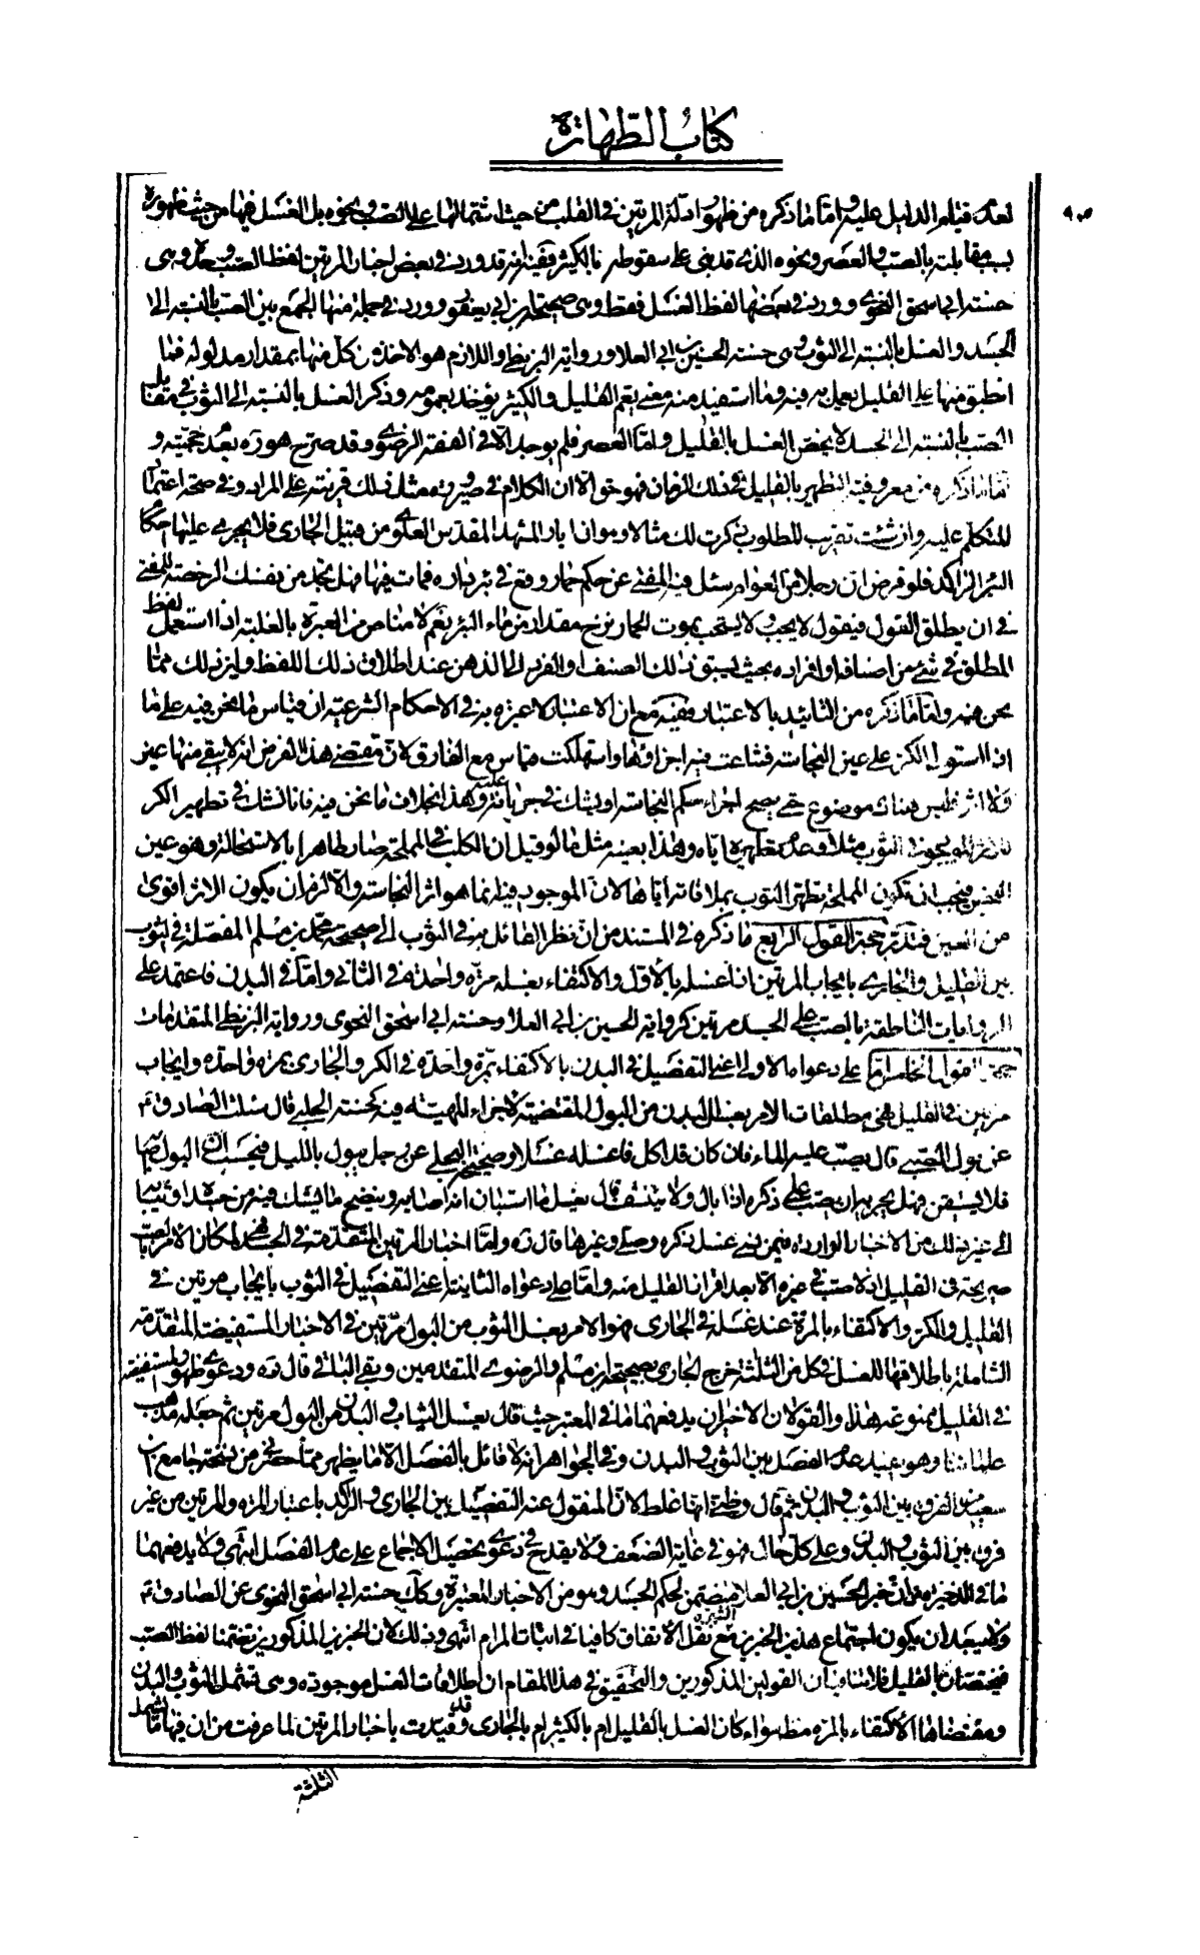 كتاب الطهارة
بعد قيام الدليل عليه وامّا ما ذكره من ظهور ادلة المرتين في القليل من حيث اشتمالها على الصب ونحوه بل الغسل فيها من حيث ظهوره
بمقابلته بالصب والعصر ونحوه الذي قد بنى على سقوطه في الكثير ففيه انه قد ورد في بعض اخبار المرتين لفظ الصب وحده وهي
حسنة ابي اسحق النحوي وورد في بعضها لفظ الغسل فقط وهي صحيحة ابن ابي يعفور وورد في جملة منها الجمع بين الصب بالنسبة الى
الجسد والغسل بالنسبة الى الثوب وهي حسنة الحسين بن ابي العلا ورواية البزنطي واللازم هو الاخذ من كل منها بمقدار مدلوله فما
انطبق منها على القليل يعمل به فيه وما استفيد منه معنى يعم القليل والكثير يؤخذ بعمومه وذكر الغسل بالنسبة الى الثوب في مقابل
الصب بالنسبة الى الجسد لا يخص الغسل بالقليل وامّا العصر فلم يوجد الّا في الفقه الرضوي وقد صرح هو ره بعدم حجيته و
امّا ما ذكره من معروفية التطهير بالقليل في ذلك الزمان فهو حق الّا ان الكلام في صيرورة مثل ذلك قرينة على المراد وفي صحة اعتماد
المتكلم عليه وان شئت تقريب المطلوب ذكرت لك مثالا وهو ان ابار المشهد المقدس الغروي من قبيل الجاري فلا يجري عليها احكام
البئر الراكد فلو فرض ان رجلا من العوام سئل فيه المفتي عن حكم حمار وقع في بئر داره فمات فيها فهل تجد من نفسك الرخصة للمفتي
في ان يطلق القول فيقول لا يجب ولا يستحب بموت الحمار نزح مقدار من ماء البئر نعم لا مناص من العبرة بالغلبة اذا استعمل لفظ
المطلق في شيء من اصنافه او افراده بحيث يسبق ذلك الصنف او الفرد الى الذهن عند اطلاق ذلك اللفظ واين ذلك ممّا
نحن فيه وامّا ما ذكره من التأييد بالاعتبار ففيه مع ان الاعتبار لا عبرة به في الاحكام الشرعية ان قياس ما نحن فيه على ما
اذا استولى الكر على عين النجاسة فشاعت فيه اجزاؤها واستهلكت قياس مع الفارق لانّ مقتضى هذا الفرض انه لا يبقى منها عين
ولا اثر فليس هناك موضوع حتى يصح اجراء حكم النجاسة او يشك في جريانه عليه وهذا بخلاف ما نحن فيه فانا نشك في تطهير الكر
لاثر البول في الثوب مثلا وعدم تطهيره اياه وهذا بعينه مثل ما لو قيل ان الكلب في المملحة صار طاهرا بالاستحالة وهو عين
النجس فيجب ان تكون المملحة تطهر الثوب بملاقاته اياها لانّ الموجود فيه انما هو اثر النجاسة والا لزم ان يكون الاثر اقوى
من العين فتدبّر حجة القول الرابع ما ذكره في المستند من انّ نظر القائل به في الثوب الى صحيحة محمد بن مسلم المفصلة في الثوب
بين القليل والجاري بايجاب المرتين اذا غسله بالاول والاكتفاء بغسله مرّة واحدة في الثاني وامّا في البدن فاعتمد على
الروايات الناطقة بالصب على الجسد مرتين كرواية الحسين بن ابي العلا وحسنة ابي اسحق النحوي ورواية البزنطي المتقدمات
حجة القول الخامس امّا على دعواه الاولى اعني التفصيل في البدن بالاكتفاء بمرّة واحدة في الكر والجاري بمرة واحدة وايجاب
مرتين في القليل فهي مطلقات الامر بغسل البدن من البول المقتضية لاجزاء المهية فيه كحسنة الحلبي قال سئلت الصادق ع
عن بول الصبي قال يصبّ عليه الماء فان كان قد اكل فاغسله غسلا وصحيحة البجلي عن رجل يبول بالليل فيحسب ان البول اصابه
فلا يستيقن فهل يجزيه ان يصب على ذكره اذا بال ولا يتنشف قال يغسل ما استبان انه اصابه وينضح ما يشك فيه من جسده او ثيابه
الى غير ذلك من الاخبار الواردة فيمن نسي غسل ذكره وصلّى وغيرها قال ره وامّا اخبار المرتين المتقدمة في الجسد فهي لمكان الامر بالصب
صريحة في القليل اذ لا صب في غيره الّا بعد افراز القليل منه وامّا على دعواه الثانية اعني التفصيل في الثوب بايجاب مرتين في
القليل والكر والاكتفاء بالمرة عند غسله في الجاري فهو الامر بغسل الثوب من البول مرّتين في الاخبار المستفيضة المتقدمة
الشاملة باطلاقها للغسل في كل من الثلثة خرج الجاري بصحيحة ابن مسلم والرضوي المتقدمين وبقي الباقي قال ره ودعوى ظهور المستفيضة
في القليل ممنوعة هذا والقولان الاخيران يدفعهما ما في المعتبر حيث قال يغسل الثياب والبدن من البول مرتين ثم جعله مذهب
علمائنا وهو يفيد عدم الفصل بين الثوب والبدن وفي الجواهر انه لا قائل بالفصل الّا ما يظهر ممّا حضرني من نسخة جامع ابن
سعيد من الفرق بين الثوب والبدن ثم قال وظني انها غلط لانّ المنقول عنه التفصيل بين الجاري والراكد باعتبار المرة والمرتين من غير
فرق بين الثوب والبدن وعلى كل حال فهو في غاية الضعف ولا يقدح في دعوى تحصيل الاجماع على عدم الفصل انتهى ولا يدفعهما
ما في الذخيرة من ان خبر الحسين بن ابي العلا متضمن لحكم الجسد وهو من الاخبار المعتبرة وكذا حسنة ابي اسحق النحوي عن الصادق ع
ولا يبعد ان يكون اجتماع هذين الخبرين مع نقل الاتفاق كافيا في اثبات المرام انتهى وذلك لان الخبرين المذكورين تضمنا لفظ الصب
فيختصان بالقليل فلا ينافيان القولين المذكورين والتحقيق في هذا المقام ان اطلاقات الغسل موجودة وهي تشمل الثوب والبدن
ومقتضاها الاكتفاء بالمرة مطلقا سواء كان الغسل بالقليل ام بالكثير ام بالجاري وقد قيدت باخبار المرتين لما عرفت من ان فيها ما يشمل
الثلثة